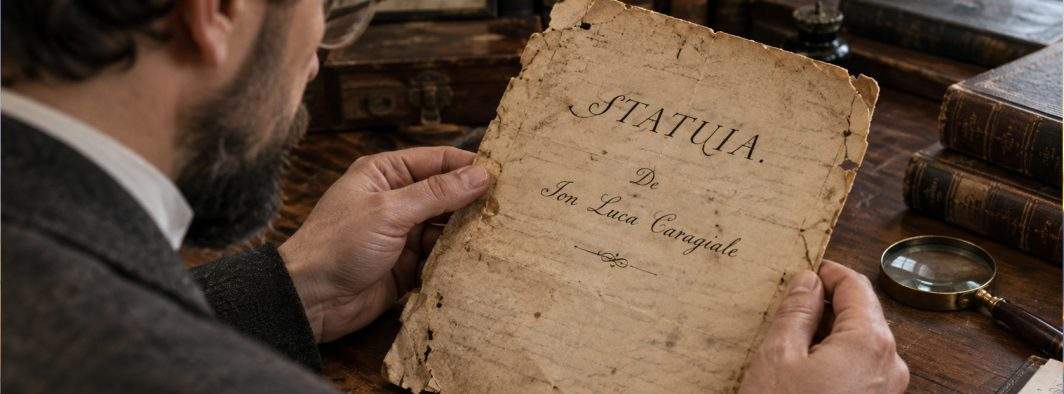 STATUIA.
De
Ion Luca Caragiale